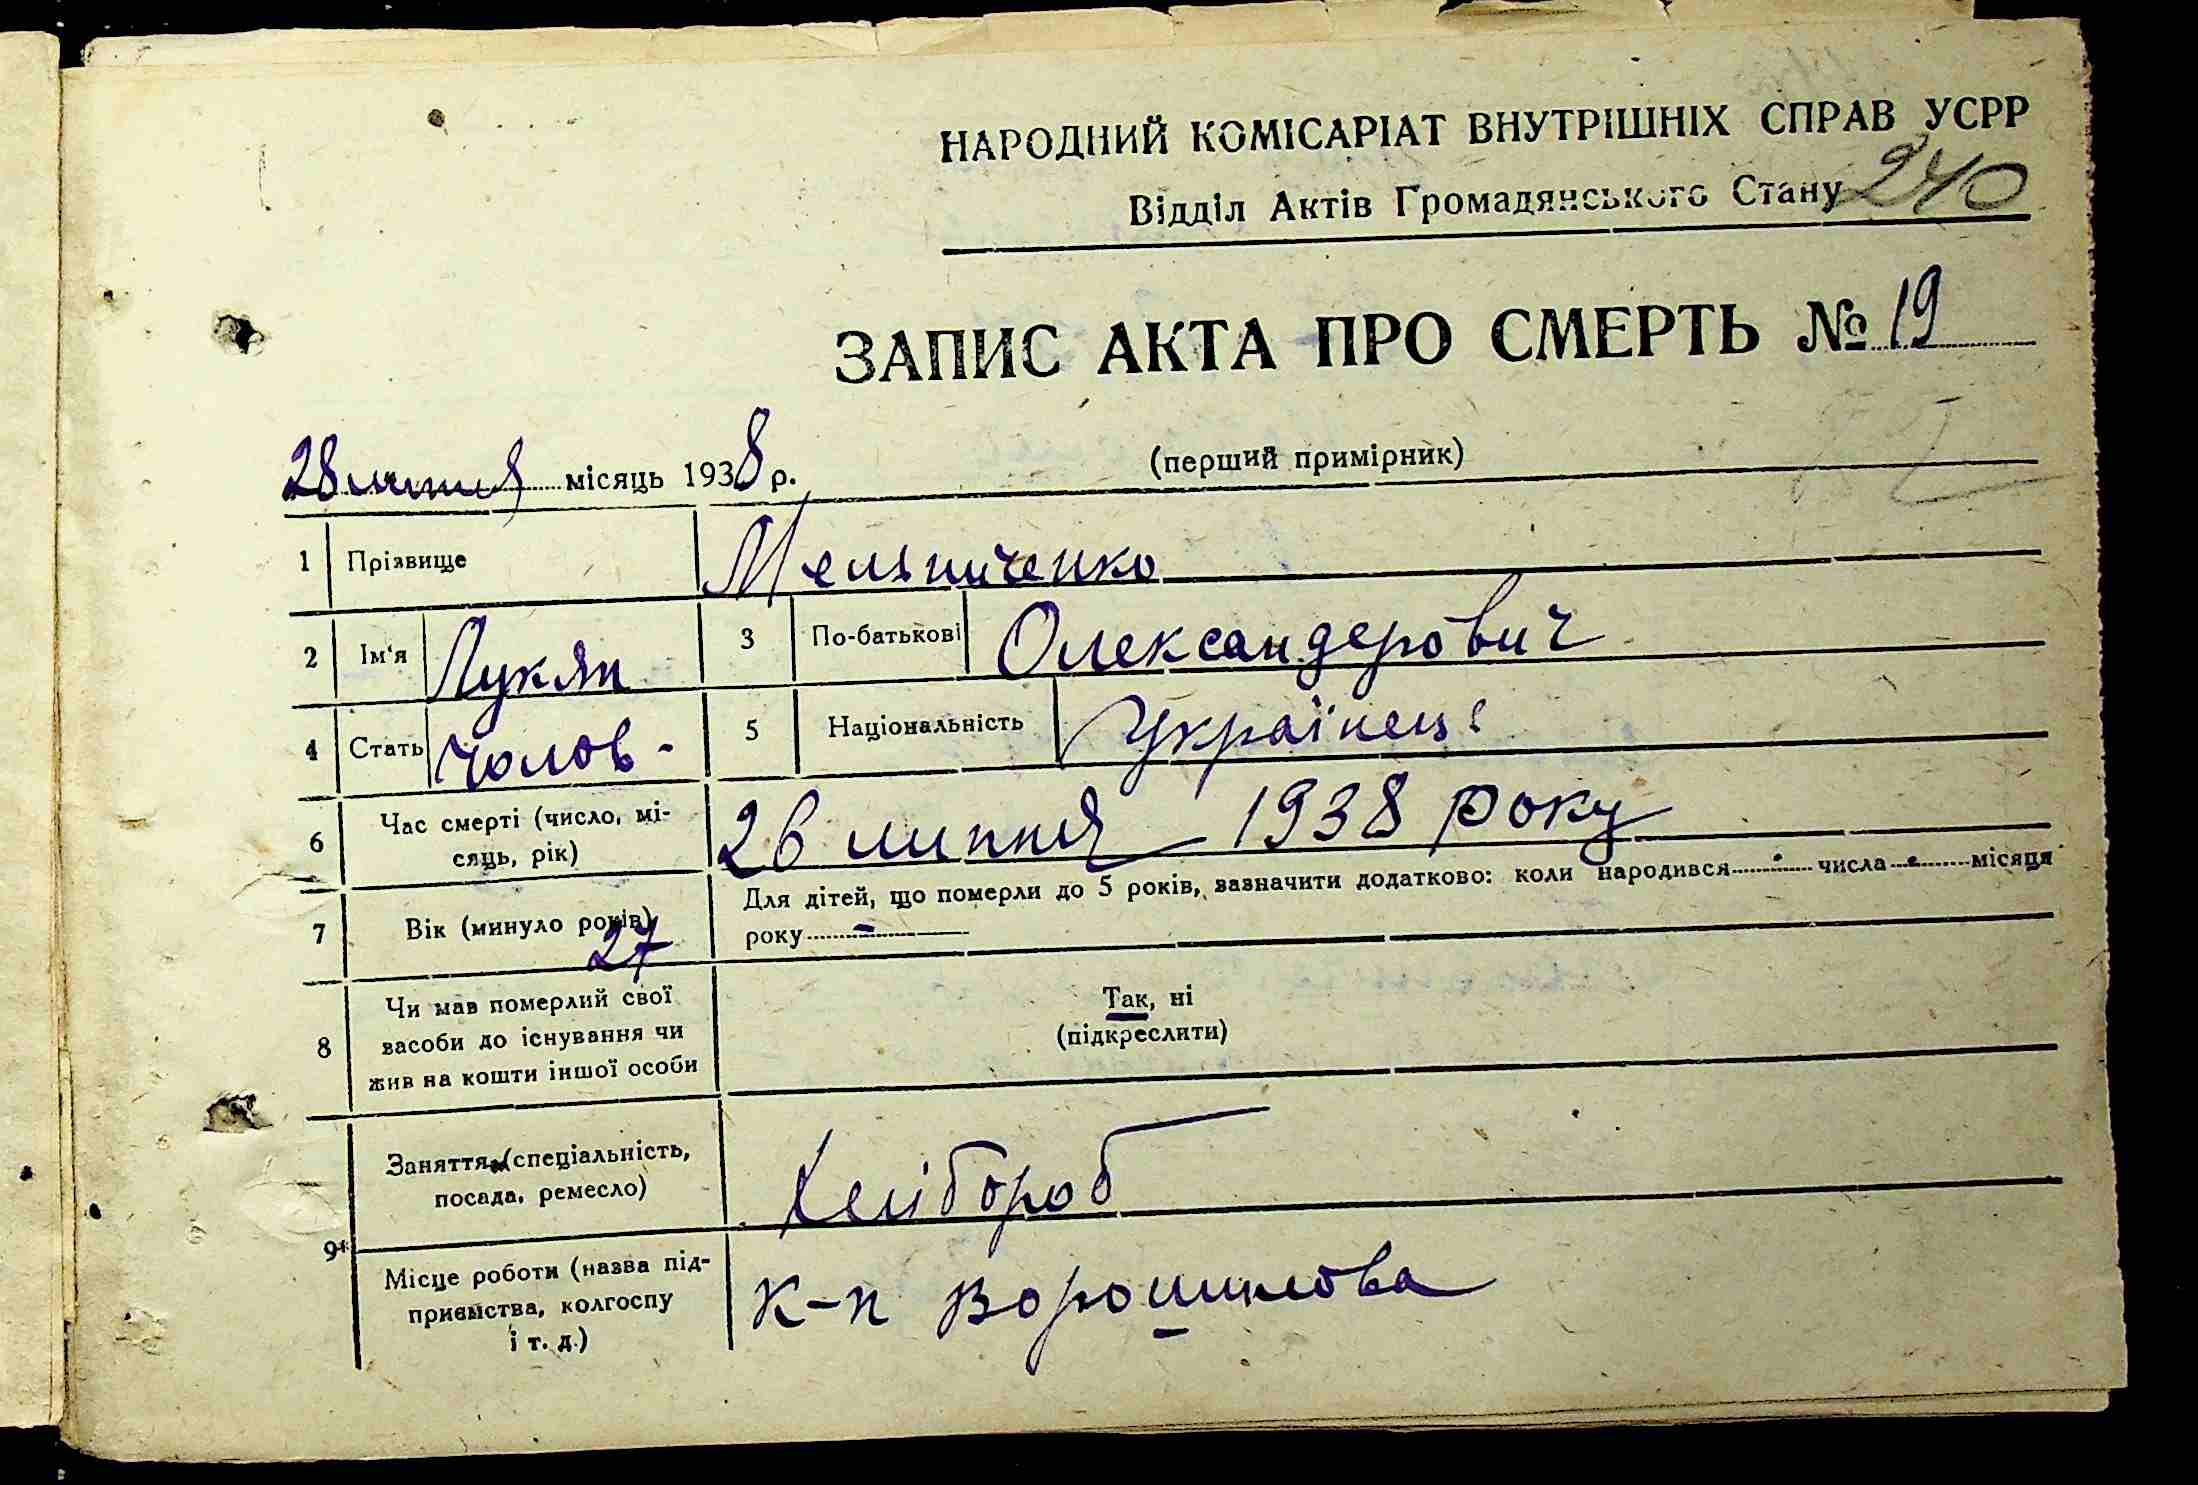 НАРОДНИЙ КОМІСАРІАТ ВНУТРІШНІХ СПРАВ УСРР
Відділ Актів Громадянського Стану 240
ЗАПИС АКТА ПРО СМЕРТЬ № 19
28 липня місяць 1938 р.
(перший примірник)
1 Прізвище Мельниченко
2 Ім'я Лукян 3 По-батькові Олександерович
4 Стать Чолов- 5 Національність Українець
6 Час смерті (число, мі-
сяць, рік) 26 липня 1938 року
7 Вік (минуло років) 27
Для дітей, що померли до 5 років, зазначити додатково: коли народився числа місяця
року -
8 Чи мав померлий свої
засоби до існування чи
жив на кошти іншої особи
Так, ні
(підкреслити)
9 Заняття (спеціальність,
посада, ремесло) Хлібороб
Місце роботи (назва під-
приємства, колгоспу
і т. д.) К-п Ворошилова